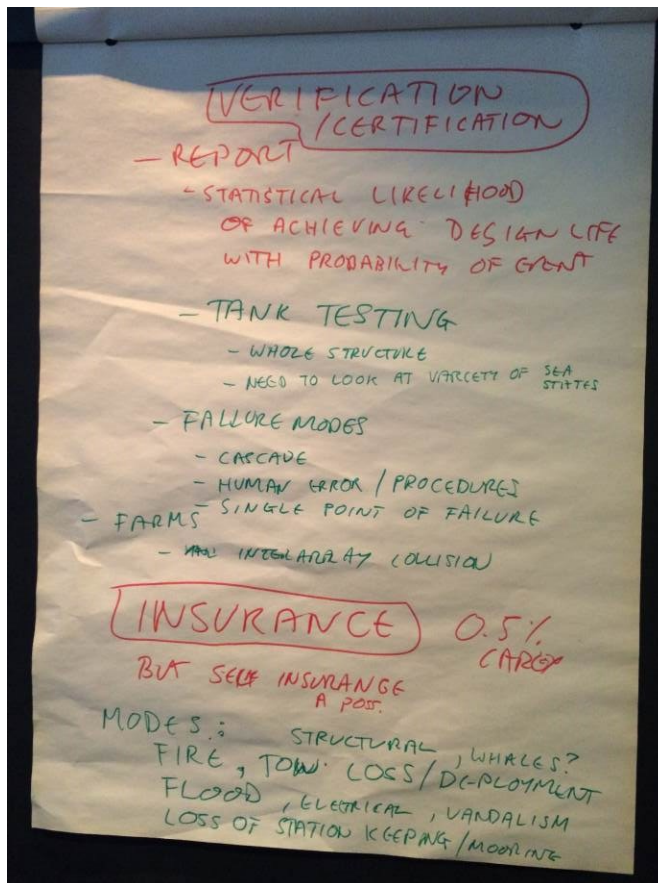 VERIFICATION
/CERTIFICATION
- REPORT
- STATISTICAL LIKELIHOOD
OF ACHIEVING DESIGN LIFE
WITH PROBABILITY OF EVENT
- TANK TESTING
- WHOLE STRUCTURE
- NEED TO LOOK AT VARIETY OF SEA
STATES
- FAILURE MODES
- CASCADE
- HUMAN ERROR / PROCEDURES
- SINGLE POINT OF FAILURE
- FARMS
- INTERARRAY COLLISION
INSURANCE 0.5%
CAPEX
BUT SELF INSURANCE
A POS.
MODES:
STRUCTURAL, WHALES?
FIRE, TOW. LOSS/DEPLOYMENT
FLOOD, ELETRICAL, VANDALISM
LOSS OF STATION KEEPING/MOORING